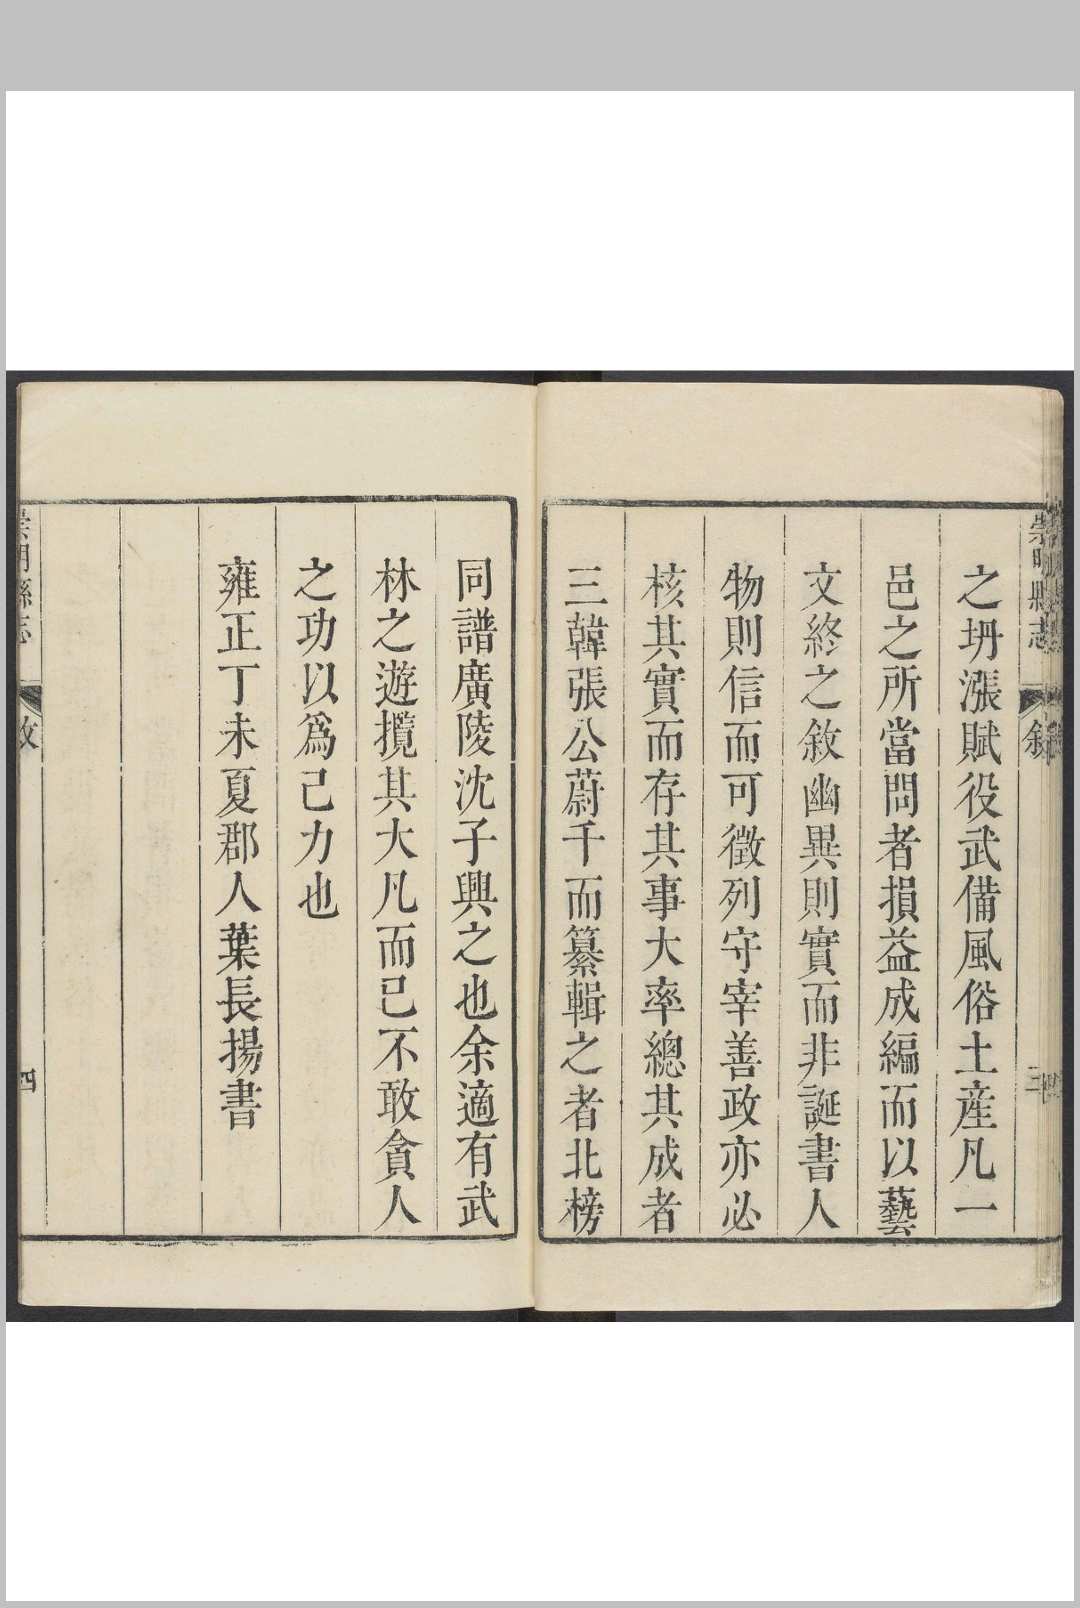 崇明縣志
敘
三
之坍漲賦役武備風俗土產凡一
邑之所當問者損益成編而以藝
文終之敘幽異則實而非誕書人
物則信而可徵列守宰善政亦必
核其實而存其事大率總其成者
三韓張公蔚千而纂輯之者北榜
同譜廣陵沈子興之也余適有武
林之遊攬其大凡而已不敢貪人
之功以爲己力也
雍正丁未夏郡人葉長揚書
崇明縣志
敘
四